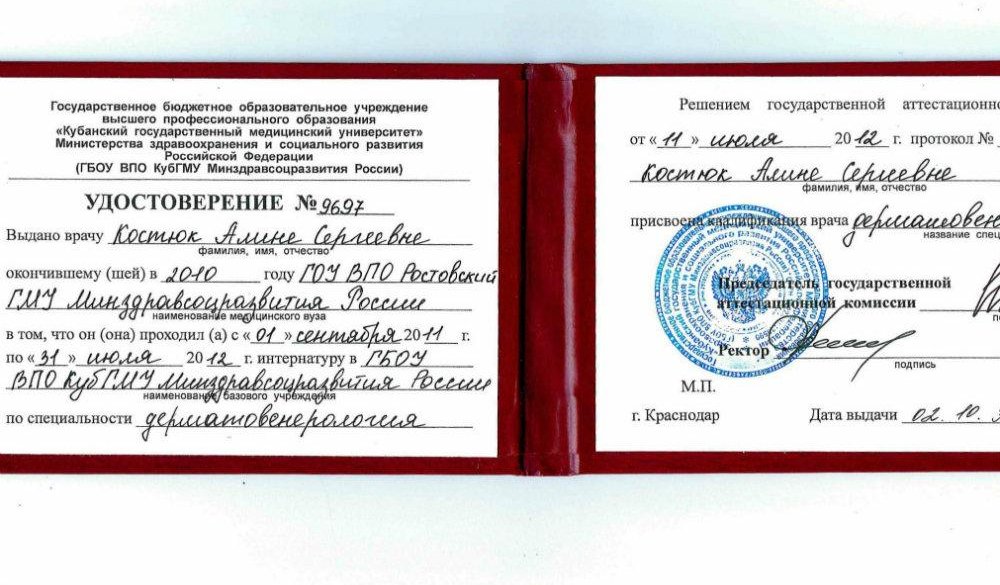 Государственное бюджетное образовательное учреждение
высшего профессионального образования
«Кубанский государственный медицинский университет»
Министерства здравоохранения и социального развития
Российской Федерации
(ГБОУ ВПО КубГМУ Минздравсоцразвития России)
УДОСТОВЕРЕНИЕ № 9697
Выдано врачу Костюк Алине Сергеевне
фамилия, имя, отчество
окончившему (шей) в 2010 году ГОУ ВПО Ростовский
ГМУ Минздравсоцразвития России
наименование медицинского вуза
в том, что он (она) проходил (а) с « 01 » сентября 2011 г.
по « 31 » июля 2012 г. интернатуру в ГБОУ
ВПО КубГМУ Минздравсоцразвития России
наименование базового учреждения
по специальности дерматовенерология
Решением государственной аттестационно
от « 11 » июля 2012 г. протокол №
Костюк Алине Сергеевне
фамилия, имя, отчество
присвоена квалификация врача дерматовен
название спец
Председатель государственной
аттестационной комиссии
по
Ректор
подпись
М.П.
г. Краснодар Дата выдачи 02.10.